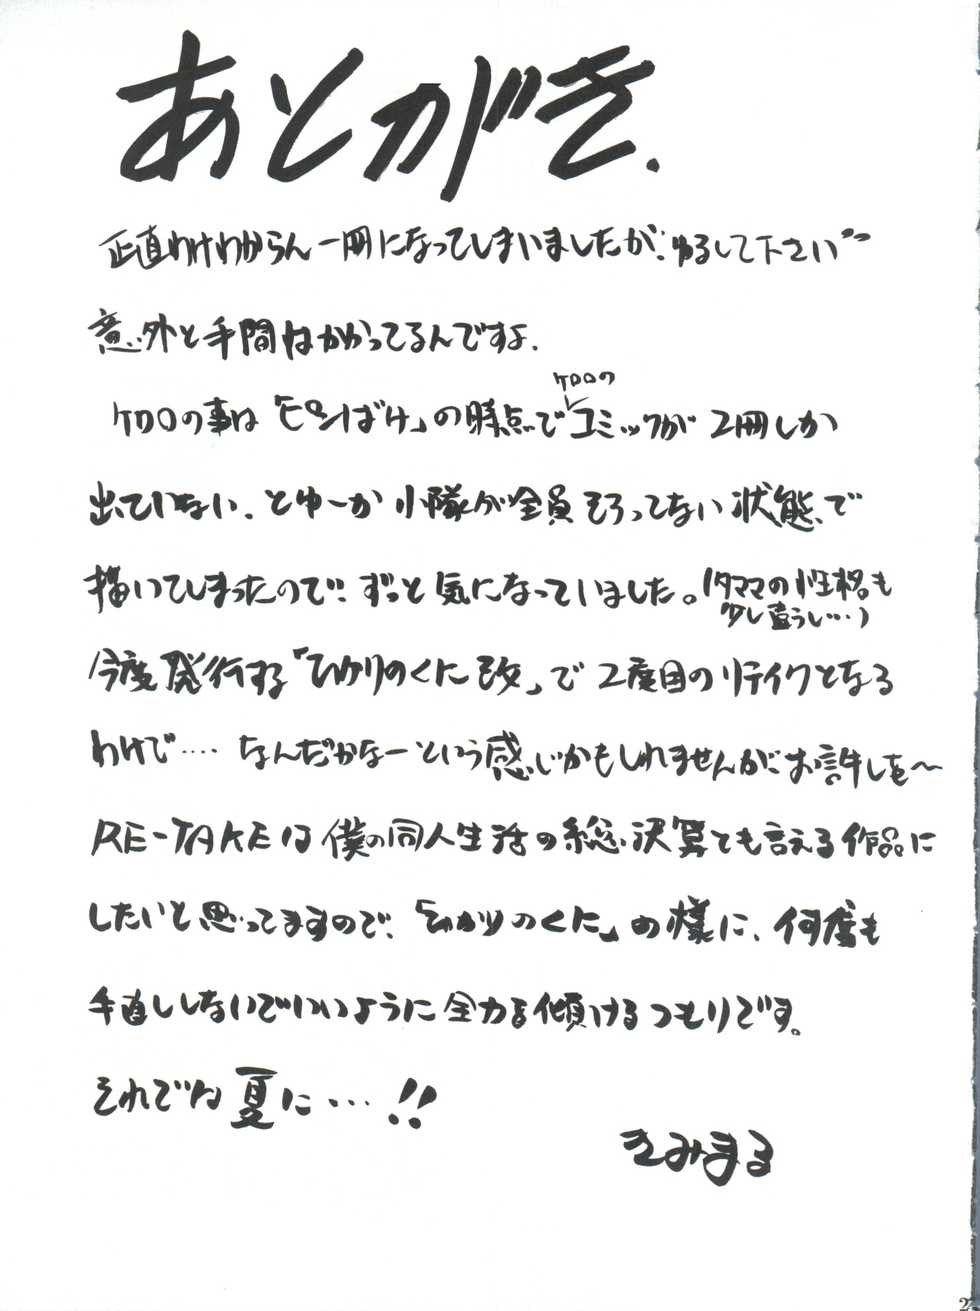 あとがき.
正直わけわからん一冊になってしまいましたが、ゆるして下さい…
意外と手間はかかってるんですよ.
ケロロの
ケロロの事は「ピンぼけ」の時点でコミックが2冊しか
出ていない. とゆーか小隊が全員そろってない状態で
描いてしまったので、ずっと気になっていました。(タママの性格も
少し違うし…)
今度発行する「ひかりのくに 改」で2度目のリテイクとなる
わけで…. なんだかなーという感じかもしれませんが、お許しを〜
RE-TAKEは僕の同人生活の総決算とも言える作品に
したいと思ってますので、「ひかりのくに」の様に、何度も
手直ししないでいいように全力を傾けるつもりです。
それでは夏に…!!
きみまる
2